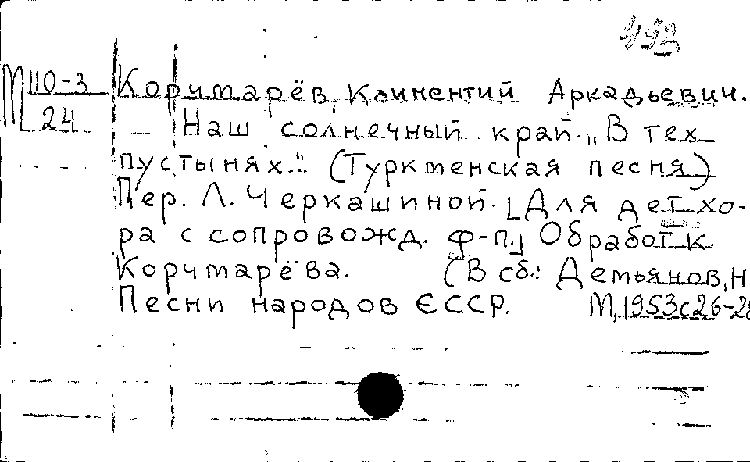 493
М 110-3 Корчмарёв, Климентий Аркадьевич.
24 Наш солнечный край. „В тех
пустынях..." (Туркменская песня)
Пер. Л. Черкашиной. [Для дет. хо-
ра с сопровожд. ф-п.] Обработ К
Корчмарёва. (В сб.: Демьянов, Н
Песни народов СССР. М, 1953 с 26-28